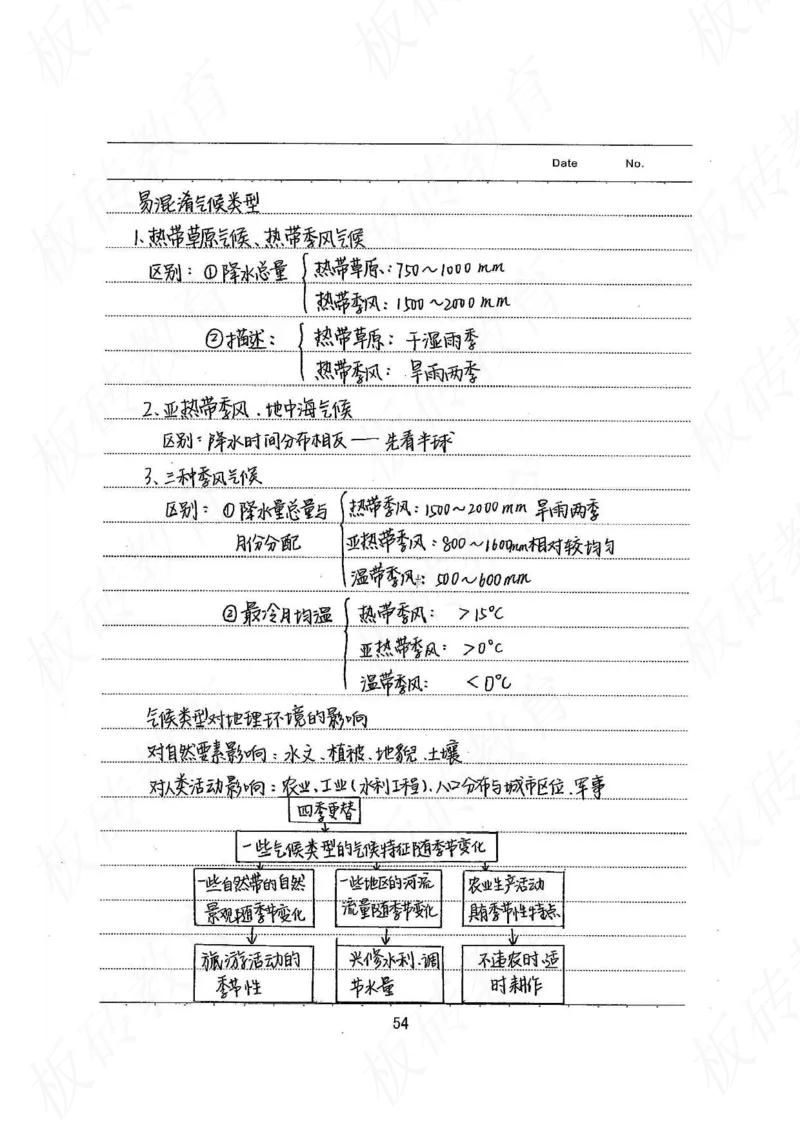 Date No.
易混淆气候类型
1、热带草原气候、热带季风气候
区别：①降水总量 热带草原：750～1000 mm
热带季风：1500～2000 mm
②描述： 热带草原：干湿雨季
热带季风：旱雨两季
2、亚热带季风、地中海气候
区别：降水时间分布相反 — 先看半球
3、三种季风气候
区别：①降水量总量与 热带季风：1500～2000mm 旱雨两季
月份分配 亚热带季风：800～1600mm相对较均匀
温带季风：500～600mm
②最冷月均温 热带季风：＞15℃
亚热带季风：＞0℃
温带季风：＜0℃
气候类型对地理环境的影响
对自然要素影响：水文、植被、地貌、土壤
对人类活动影响：农业、工业（水利工程）、人口分布与城市区位、军事
四季更替
一些气候类型的气候特征随季节变化
一些自然带的自然 一些地区的河流 农业生产活动
景观随季节变化 流量随季节变化 具有季节性特点
旅游活动的 兴修水利、调 不违农时、适
季节性 节水量 时耕作
54
板砖教育